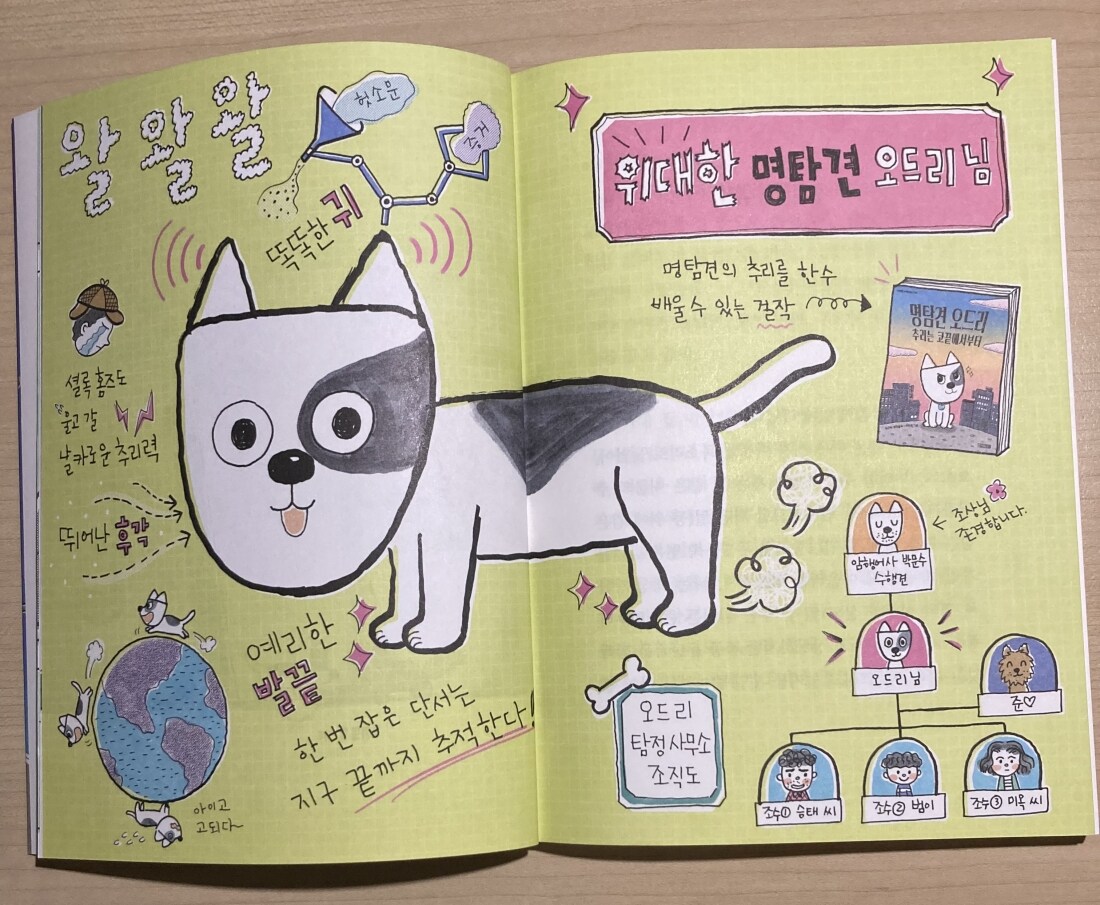 왈 왈 왈
헛소문
증거
똑똑한 귀
셜록 홈즈도
울고 갈
날카로운 추리력
뛰어난 후각
예리한
발끝
한 번 잡은 단서는
지구 끝까지 추적한다!
아이고
고되다~
위대한 명탐견 오드리 님
명탐견의 추리를 한 수
배울 수 있는 걸작
명탐견 오드리
추리는 코끝에서부터
조상님
존경합니다.
암행어사 박문수
수행견
오드리님
준♡
오드리
탐정사무소
조직도
조수① 승태 씨
조수② 범이
조수③ 미옥 씨